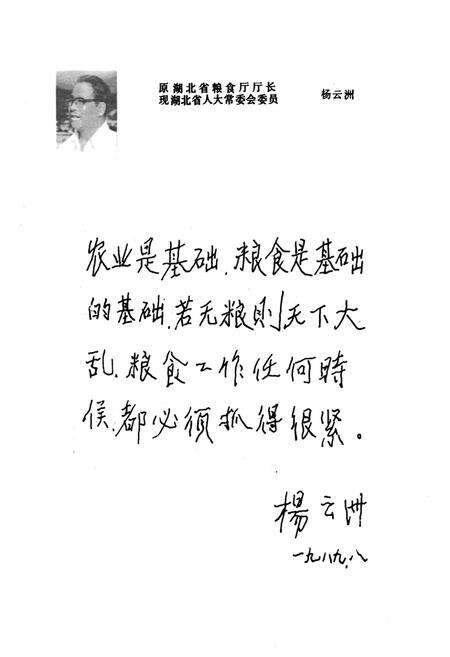 原湖北省粮食厅厅长
现湖北省人大常委会委员 杨云洲
农业是基础、粮食是基础
的基础、若无粮則天下大
乱、粮食工作任何時
侯、都必须抓得很紧。
楊云洲
一九八九、八